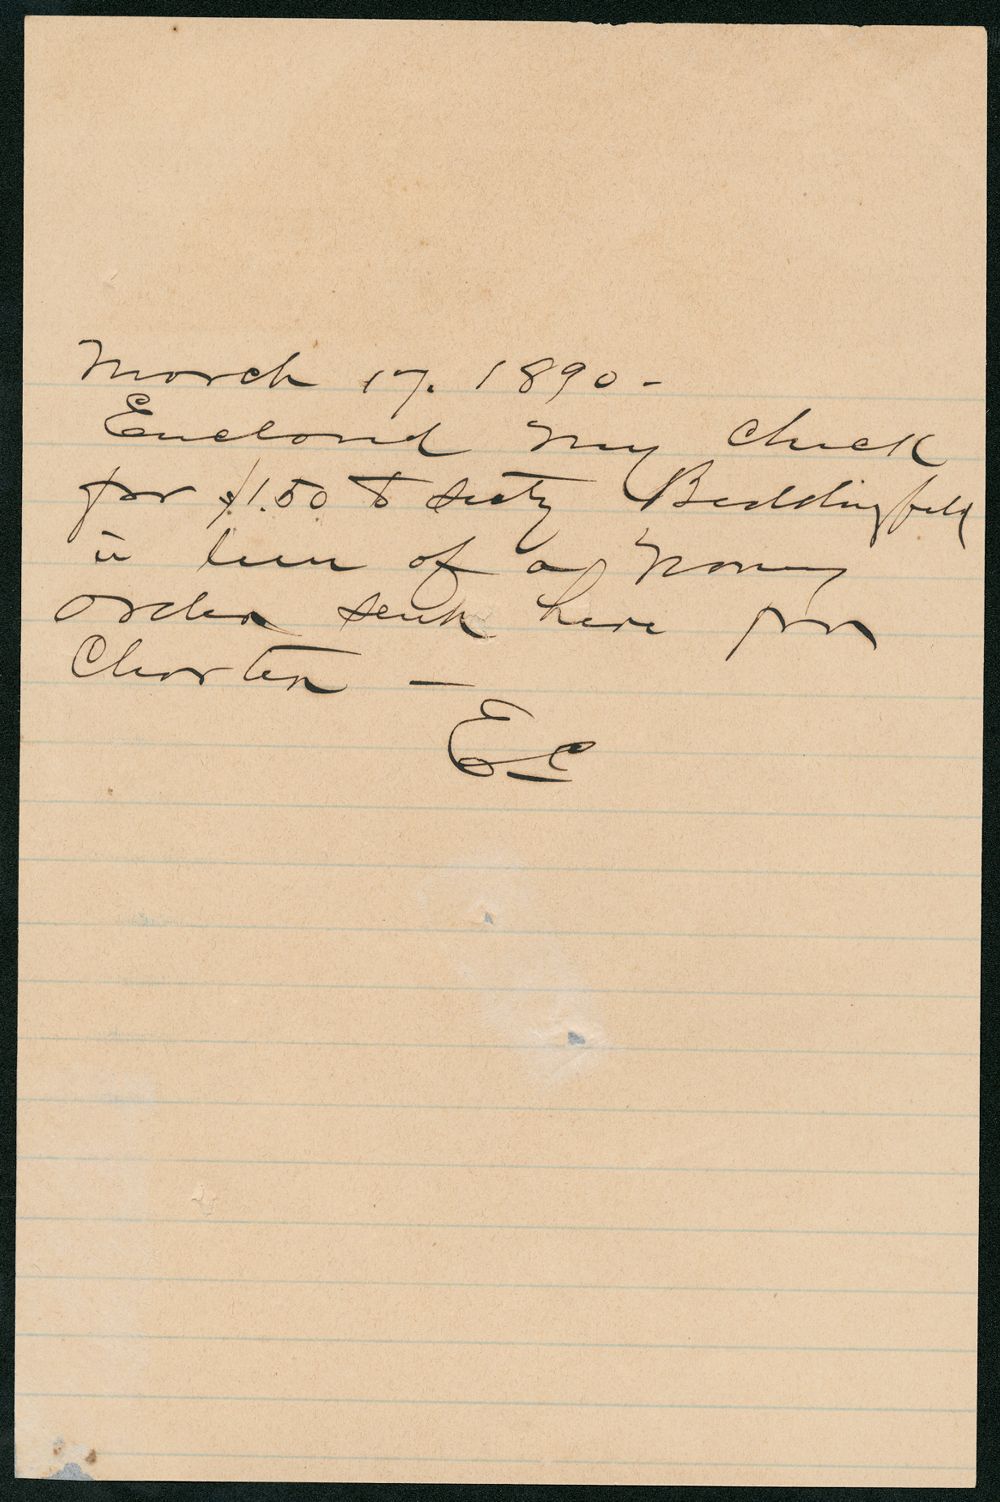 March 17. 1890-
Enclosed my check
for $1.50 to secty Beddingfield
in lieu of a money
order sent here for
Charter -
EC